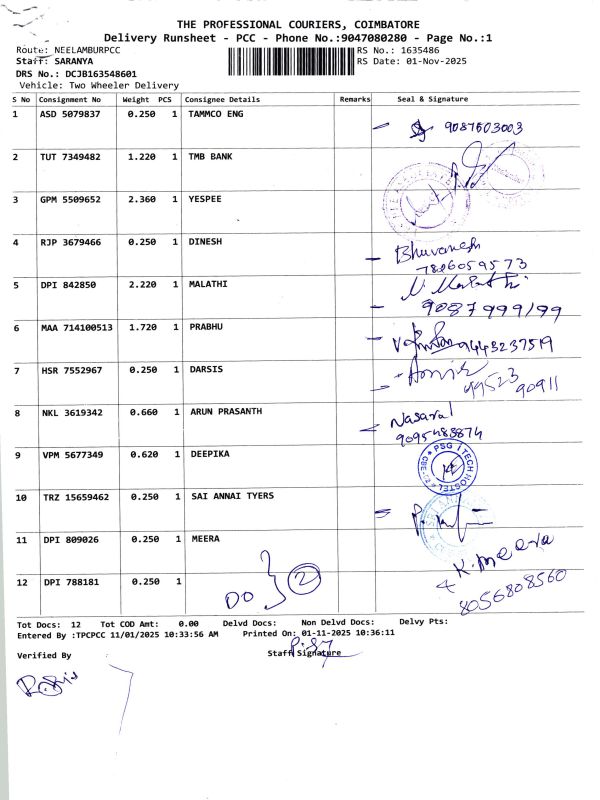 THE PROFESSIONAL COURIERS, COIMBATORE
Delivery Runsheet - PCC - Phone No.:9047080280 - Page No.:1
Route: NEELAMBURPCC RS No.: 1635486
Staff: SARANYA RS Date: 01-Nov-2025
DRS No.: DCJB163548601
Vehicle: Two Wheeler Delivery
S No Consignment No Weight PCS Consignee Details Remarks Seal & Signature
1 ASD 5079837 0.250 1 TAMMCO ENG
9087603003
2 TUT 7349482 1.220 1 TMB BANK
3 GPM 5509652 2.360 1 YESPEE
4 RJP 3679466 0.250 1 DINESH
Bhuvanesh
7826059573
5 DPI 842850 2.220 1 MALATHI
N. Malathi
9087999199
6 MAA 714100513 1.720 1 PRABHU
9443237519
7 HSR 7552967 0.250 1 DARSIS
99523
90911
8 NKL 3619342 0.660 1 ARUN PRASANTH
Nasaral
9095483874
9 VPM 5677349 0.620 1 DEEPIKA
PSG iTECH HOSTEL
10 TRZ 15659462 0.250 1 SAI ANNAI TYERS
11 DPI 809026 0.250 1 MEERA
K. Meera
12 DPI 788181 0.250 1
DO 2
8056808560
Tot Docs: 12 Tot COD Amt: 0.00 Delvd Docs: Non Delvd Docs: Delvy Pts:
Entered By :TPCPCC 11/01/2025 10:33:56 AM Printed On: 01-11-2025 10:36:11
Verified By Staff Signature